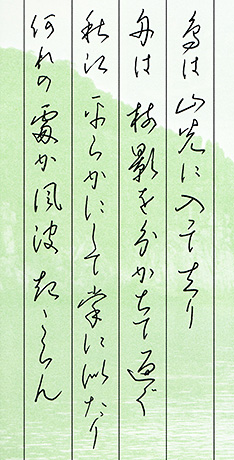 鳥は山光に入って去り
舟は樹影を分かちて過ぐ
秋江平らかにして掌に似たり
何れの處か風波起こらん